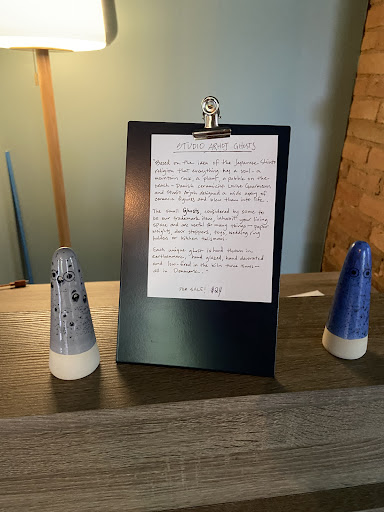 STUDIO ARHOJ GHOSTS
Based on the idea of the Japanese Shinto
religion that everything has a soul - a
mountain rock, a plant, a pebble on the
beach - Danish ceramicists Louise Gaarmann
and Anders Arhoj designed a wide array of
ceramic figures and blew them into life.
The small Ghosts, considered by some to
be our trademark item, inhabit your living
space and are useful for many things - paper
weights, door stoppers, toys, wedding ring
holders or kitchen talismans.
Each unique ghost is hand thrown in
earthenware, hand glazed, hand decorated
and hand-fired in the kiln three times -
all in Denmark.
FOR SALE! $24